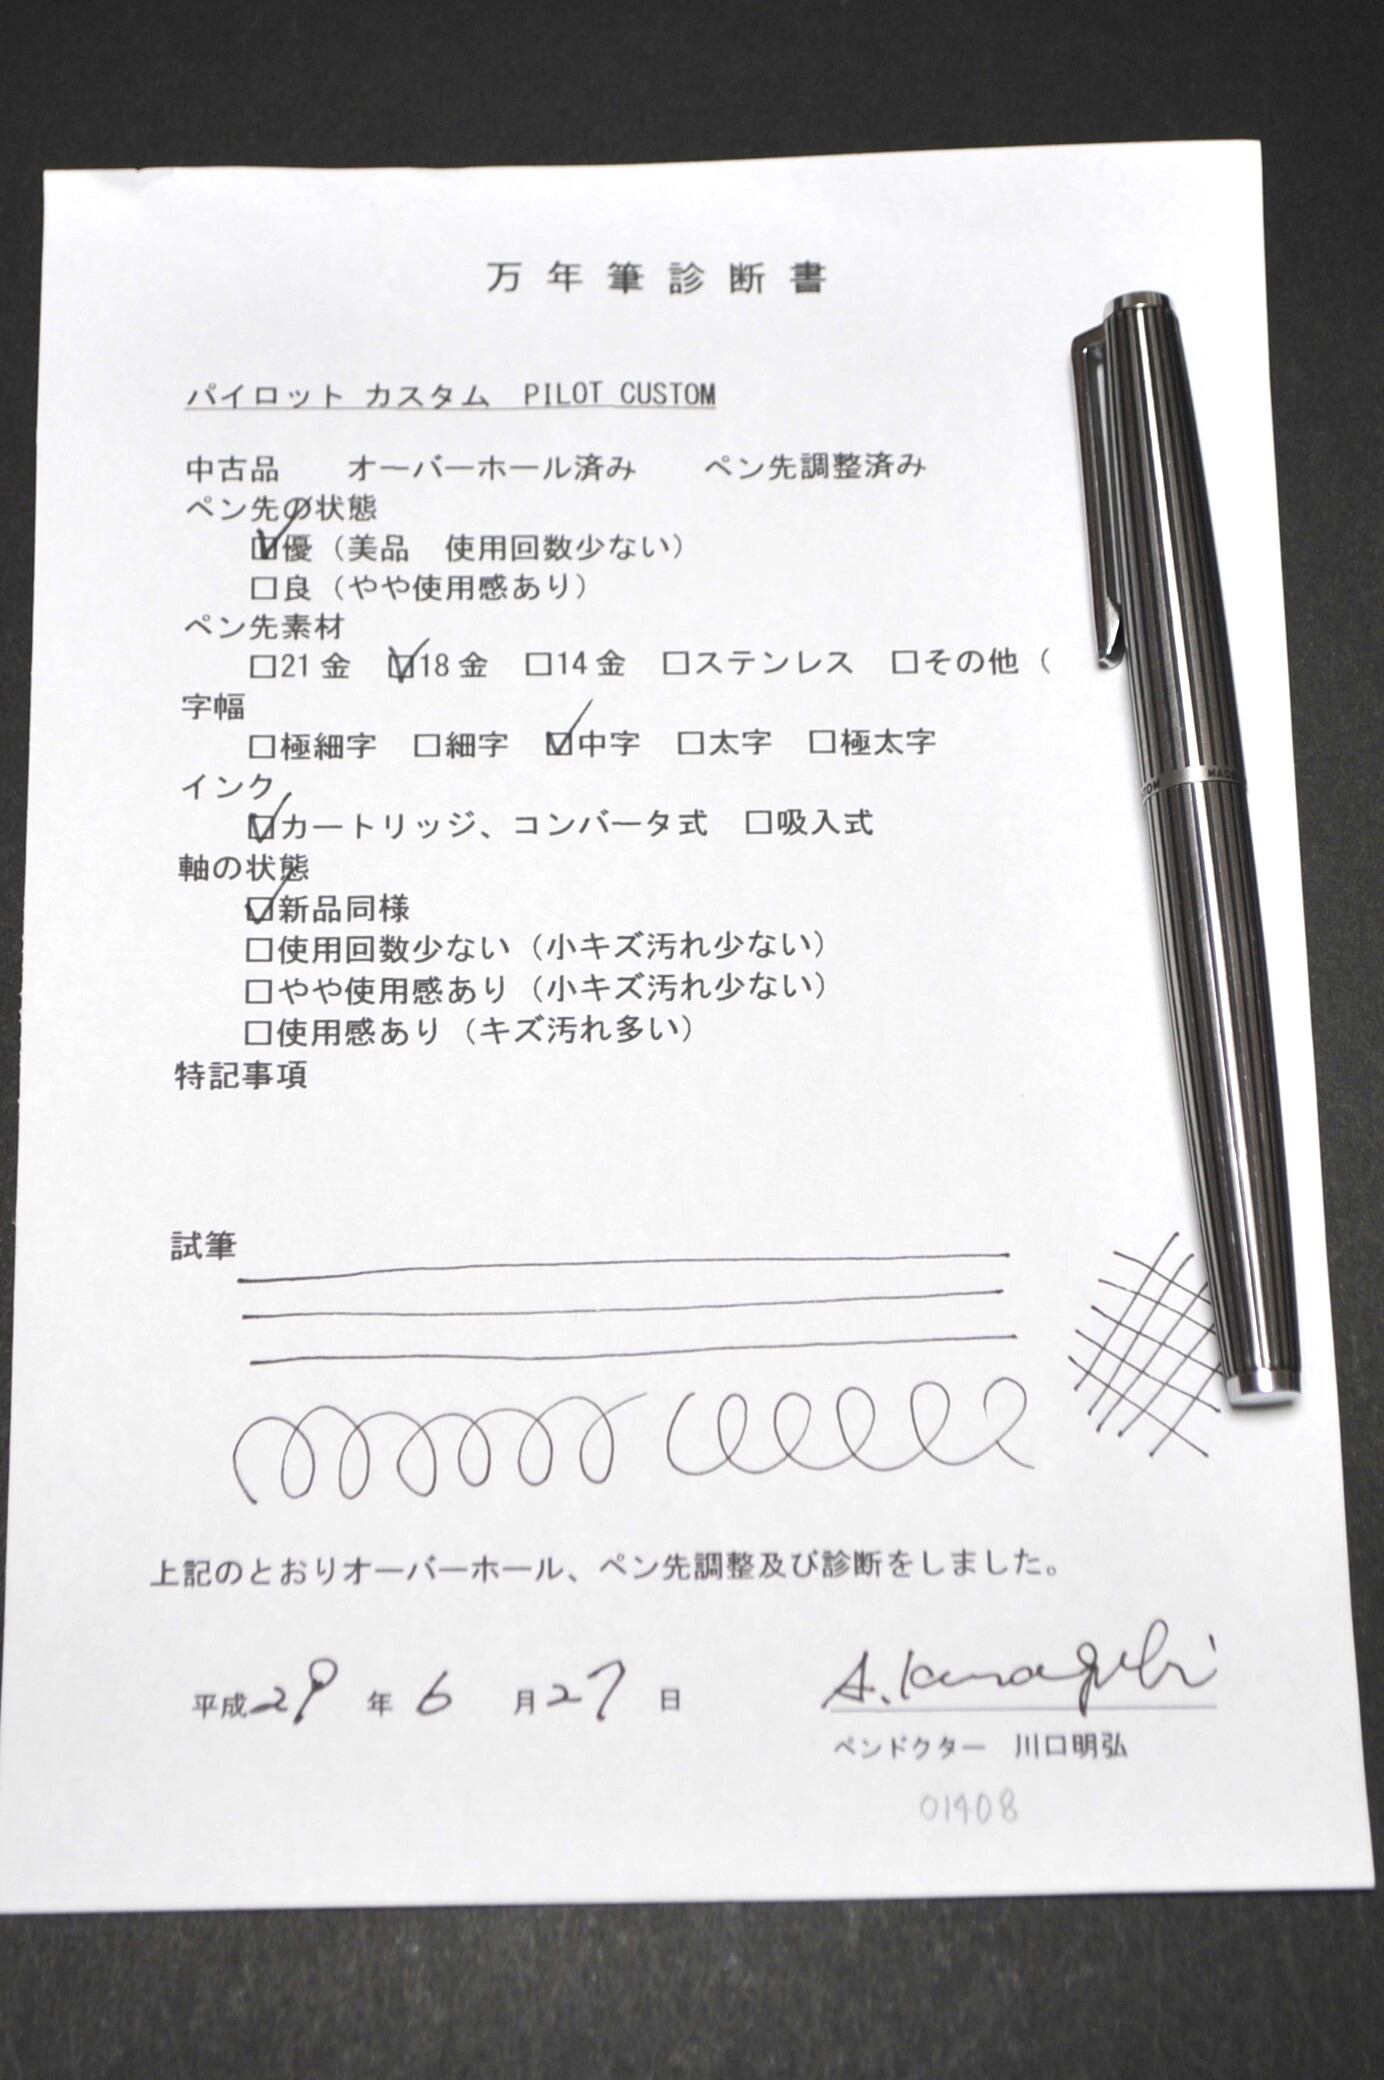 万年筆診断書
パイロット カスタム　PILOT CUSTOM
中古品　オーバーホール済み　ペン先調整済み
ペン先の状態
☑優（美品　使用回数少ない）
□良（やや使用感あり）
ペン先素材
□21金　☑18金　□14金　□ステンレス　□その他（
字幅
□極細字　□細字　☑中字　□太字　□極太字
インク
☑カートリッジ、コンバータ式　□吸入式
軸の状態
☑新品同様
□使用回数少ない（小キズ汚れ少ない）
□やや使用感あり（小キズ汚れ少ない）
□使用感あり（キズ汚れ多い）
特記事項
試筆
上記のとおりオーバーホール、ペン先調整及び診断をしました。
平成29年6月27日
A. Kawaguchi
ペンドクター　川口明弘
01408